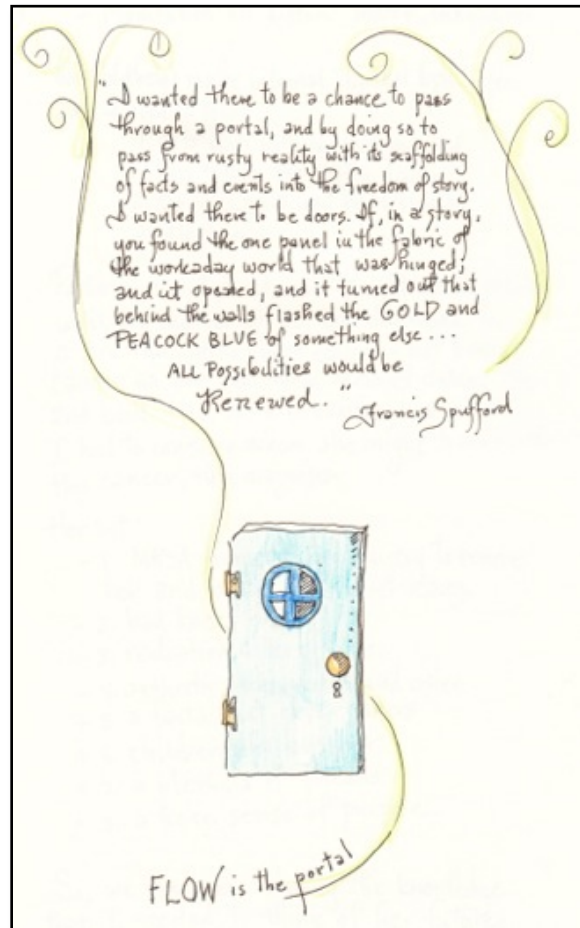 "I wanted there to be a chance to pass
through a portal, and by doing so to
pass from rusty reality with its scaffolding
of facts and events into the freedom of story.
I wanted there to be doors. If, in a story,
you found the one panel in the fabric of
the workaday world that was hinged;
and it opened, and it turned out that
behind the walls flashed the GOLD and
PEACOCK BLUE of something else...
ALL Possibilities would be
Renewed."
Francis Spufford
FLOW is the portal